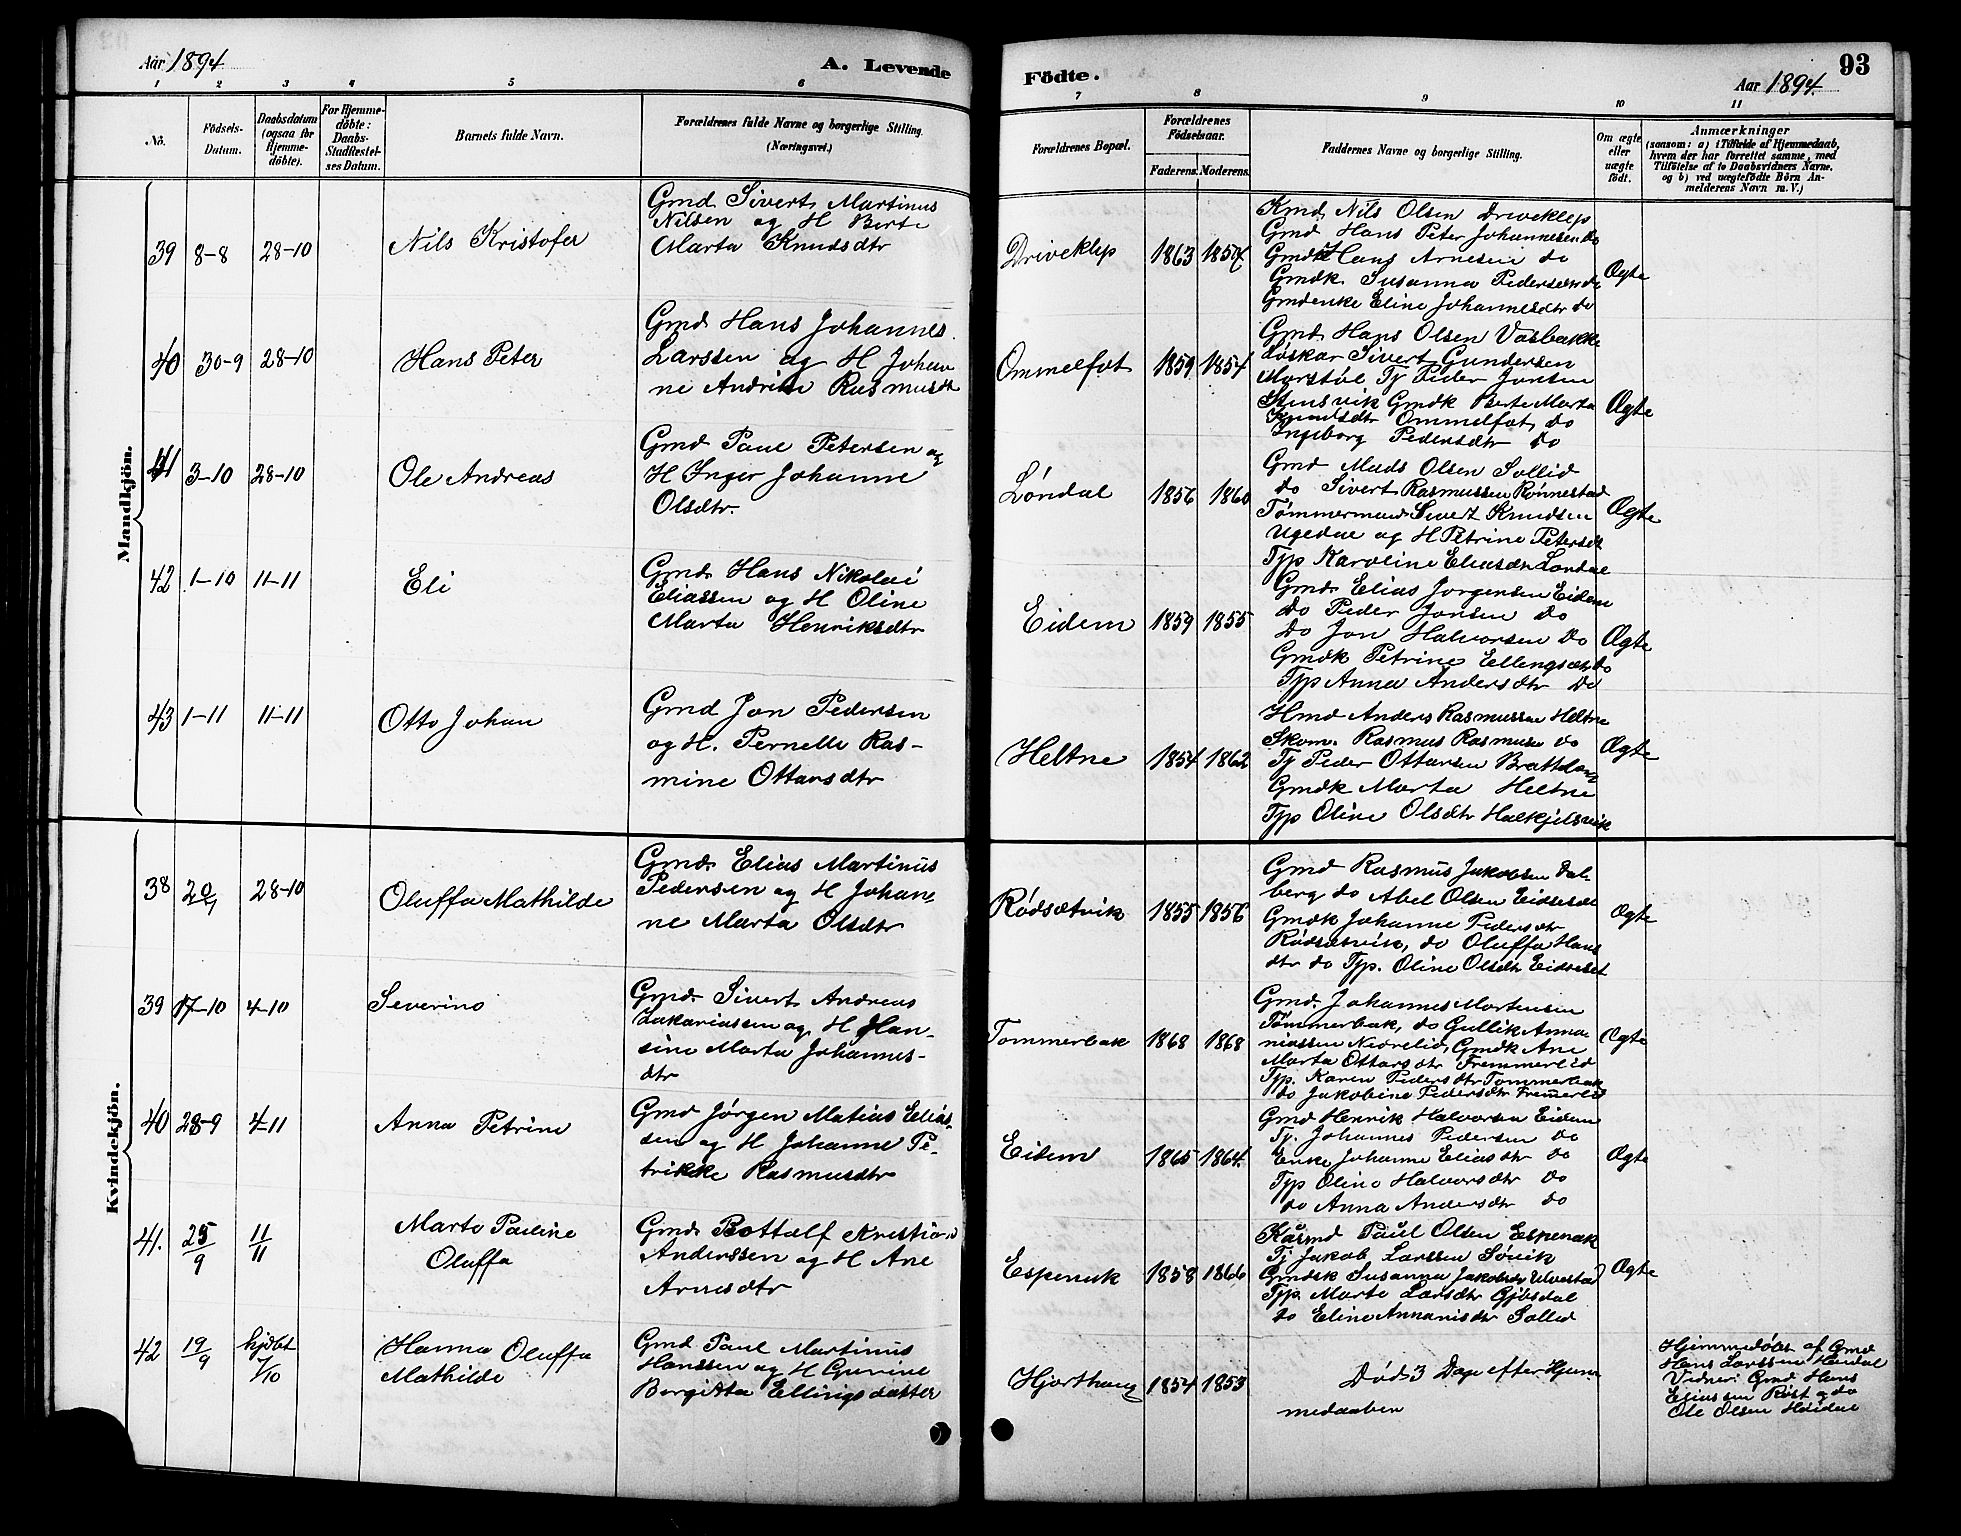 Aar 1894
A. Levende
1 2 3 4 5 6
Nö.
Födsels-
Datum.
Daabsdatum
(ogsaa for
Hjemme-
döbte).
For Hjemme-
döbte:
Daabs-
Stadfestel-
ses Datum.
Barnets fulde Navn.
Forældrenes fulde Navne og borgerlige Stilling.
(Næringsvei.)
Mandkjön.
39 8-8 28-10 Nils Kristofer
Gmd Sivert Martinus
Nilsen og H Berte
Marta Knudsdtr
40 30-9 28-10 Hans Peter
Gmd Hans Johannes
Larssen og H Johan
ne Andrine Rasmusdt
41 3-10 28-10 Ole Andreas
Gmd Paul Petersen og
H Inger Johanne
Olsdtr.
42 1-10 11-11 Eli
Gmd Hans Nikolai
Eliassen og H Oline
Marta Henriksdtr
43 1-11 11-11 Otto Johan
Gmd Jon Pedersen
og H. Pernelle Ras-
mine Ottarsdtr
Kvindekjön.
38 28-10 Oluffa Mathilde
Gmd Elias Martinus
Pedersen og H Johan-
ne Marta Olsdtr
39 17-10 4-10 Severine
Gmd. Sivert Andreas
Zakariassen og H Han-
sine Marta Johannes-
dtr
40 28-9 4-11 Anna Petrine
Gmd Jørgen Matias Elias-
sen og H Johanne Pe-
trikke Rasmusdtr
41. 25/9 11/11 Marte Pauline
Oluffa
Gmd Bottolf Kristian
Anderssen og H Ane
Arnesdtr
42 19/9 hjdbt 7/10 Hanna Oluffa
Mathilde
Gmd Paul Martinus
Hanssen og H Gurine
Bergitta Ellingsdatter
Födte.
93
Aar 1894.
7 8 9 10 11
Forældrenes Bopæl.
Forældrenes
Födselsaar.
Faderens. Moderens.
Faddernes Navne og borgerlige Stilling.
Om ægte
eller
uægte
födt.
Anmærkninger
(saasom: a) i Tilfælde af Hjemmedaab,
hvem der har forrettet samme, med
Tilföielse af to Daabsvidners Navne.
og b) ved uægtefödte Börn An-
melderens Navn m. V.)
Driveklep 1863 1857 Ægte
Kmd Nils Olsen Driveklep
Gmd Hans Peter Johannesen do
Gmdk Hans Arnesen do
Gmdk. Susanna Pedersdtr do
Gmdenke Eline Johannesdtr do
Ommelfot 1859 1854 Ægte
Gmd Hans Olsen Vasbakke
Løskar Sivert Gundersen
Marstøl Tj Peder Jonsen
Stensvik Gmdk Berte Marta
Knudsdtr Ommelfot, do
Ingeborg Pedersdtr do
Løndal 1856 1860 Ægte
Gmd Mads Olsen Sollid
do Sivert Rasmussen Rønnestad
Tømmermand Sivert Knudsen
Ugedal og H Petrine Petersdt
Typ Karoline Eliasdtr Løndal
Eidem 1859 1855 Ægte
Gmd Elias Jørgensen Eidem
do Peder Jonsen do
do Jon Halvorsen do
Gmdk Petrine Ellengsdtr do
Typ Anna Andersdtr do
Heltne 1854 1862 Ægte
Hmd Anders Rasmussen Heltne
Skom. Rasmus Rasmusen do
Tj Peder Ottarsen Brattdang
Gmdk Marta Heltne
Typ Oline Olsdtr Halkjelsvik
Rødsætvik 1855 1856 Ægte
Gmd Rasmus Jakobsen Dal-
berg do Abel Olsen Eidseset
Gmdk Johanne Pedersdtr
Rødsætvik, do Oluffa Hans
dtr do Typ. Oline Olsdtr Eidseset
Tømmerbak 1868 1868 Ægte
Gmd. Johannes Mortensen
Tømmerbak, do Gullik Anna-
niassen Nedrelid, Gmdk Ane
Marta Ottarsdtr Fremmerlid
Typ. Karen Pedersdtr Tømmerbak
do Jakobine Pedersdtr Fremerlid
Eidem 1865 1864. Ægte
Gmd Henrik Halvorsen Eidem
Tj. Johannes Pedersen do
Enke Johanne Eliasdtr do
Typ Oline Halvorsdtr do
do Anna Andersdtr do
Espenak 1858 1866 Ægte
Kasmd Paul Olsen Espenak
Tj Jakob Larssen Søvik
Gmdsk Susanna Jakobsdtr Ulvestad
Typ. Marte Larsdtr Gjøsdal
do Eline Annanisdtr Sollid
Hjorthaug 1854 1853
Død 3 Dage efter Hjem
medaaben
Hjemmedøbt af Gmd
Hans Larssen Høidal
Vidner: Gmd Hans
Eliassen Røst og do
Ole Olsen Høidal